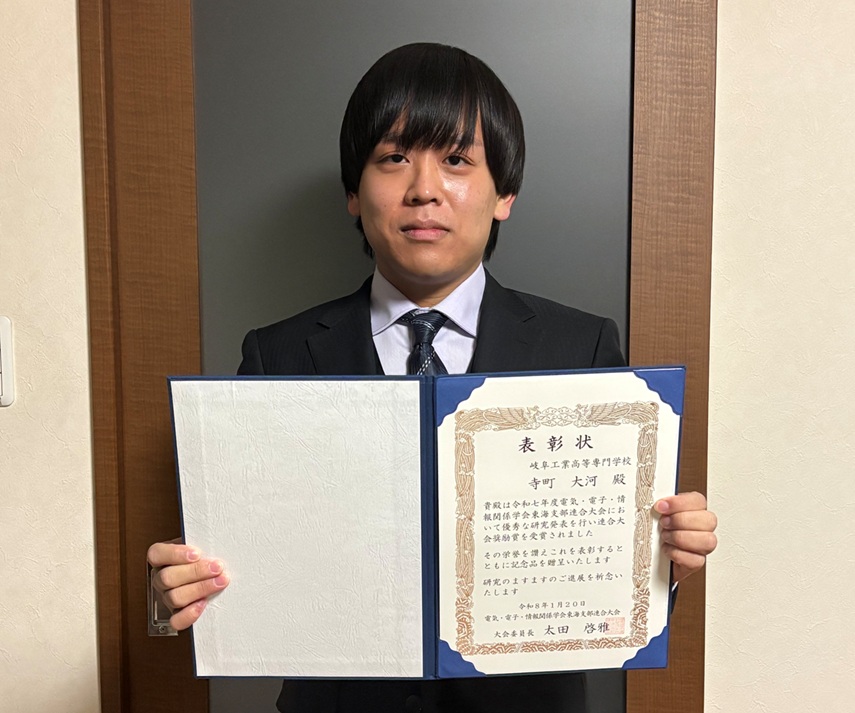 表彰状
岐阜工業高等専門学校
寺町 大河 殿
貴殿は令和七年度電気・電子・情
報関係学会東海支部連合大会にお
いて優秀な研究発表を行い連合大
会奨励賞を受賞されました
その学誉を讃えこれを表彰すると
ともに記念品を贈呈いたします
研究のますますのご進展を祈念い
たします
令和8年1月20日
電気・電子・情報関係学会東海支部連合大会
大会委員長 太田 啓雅